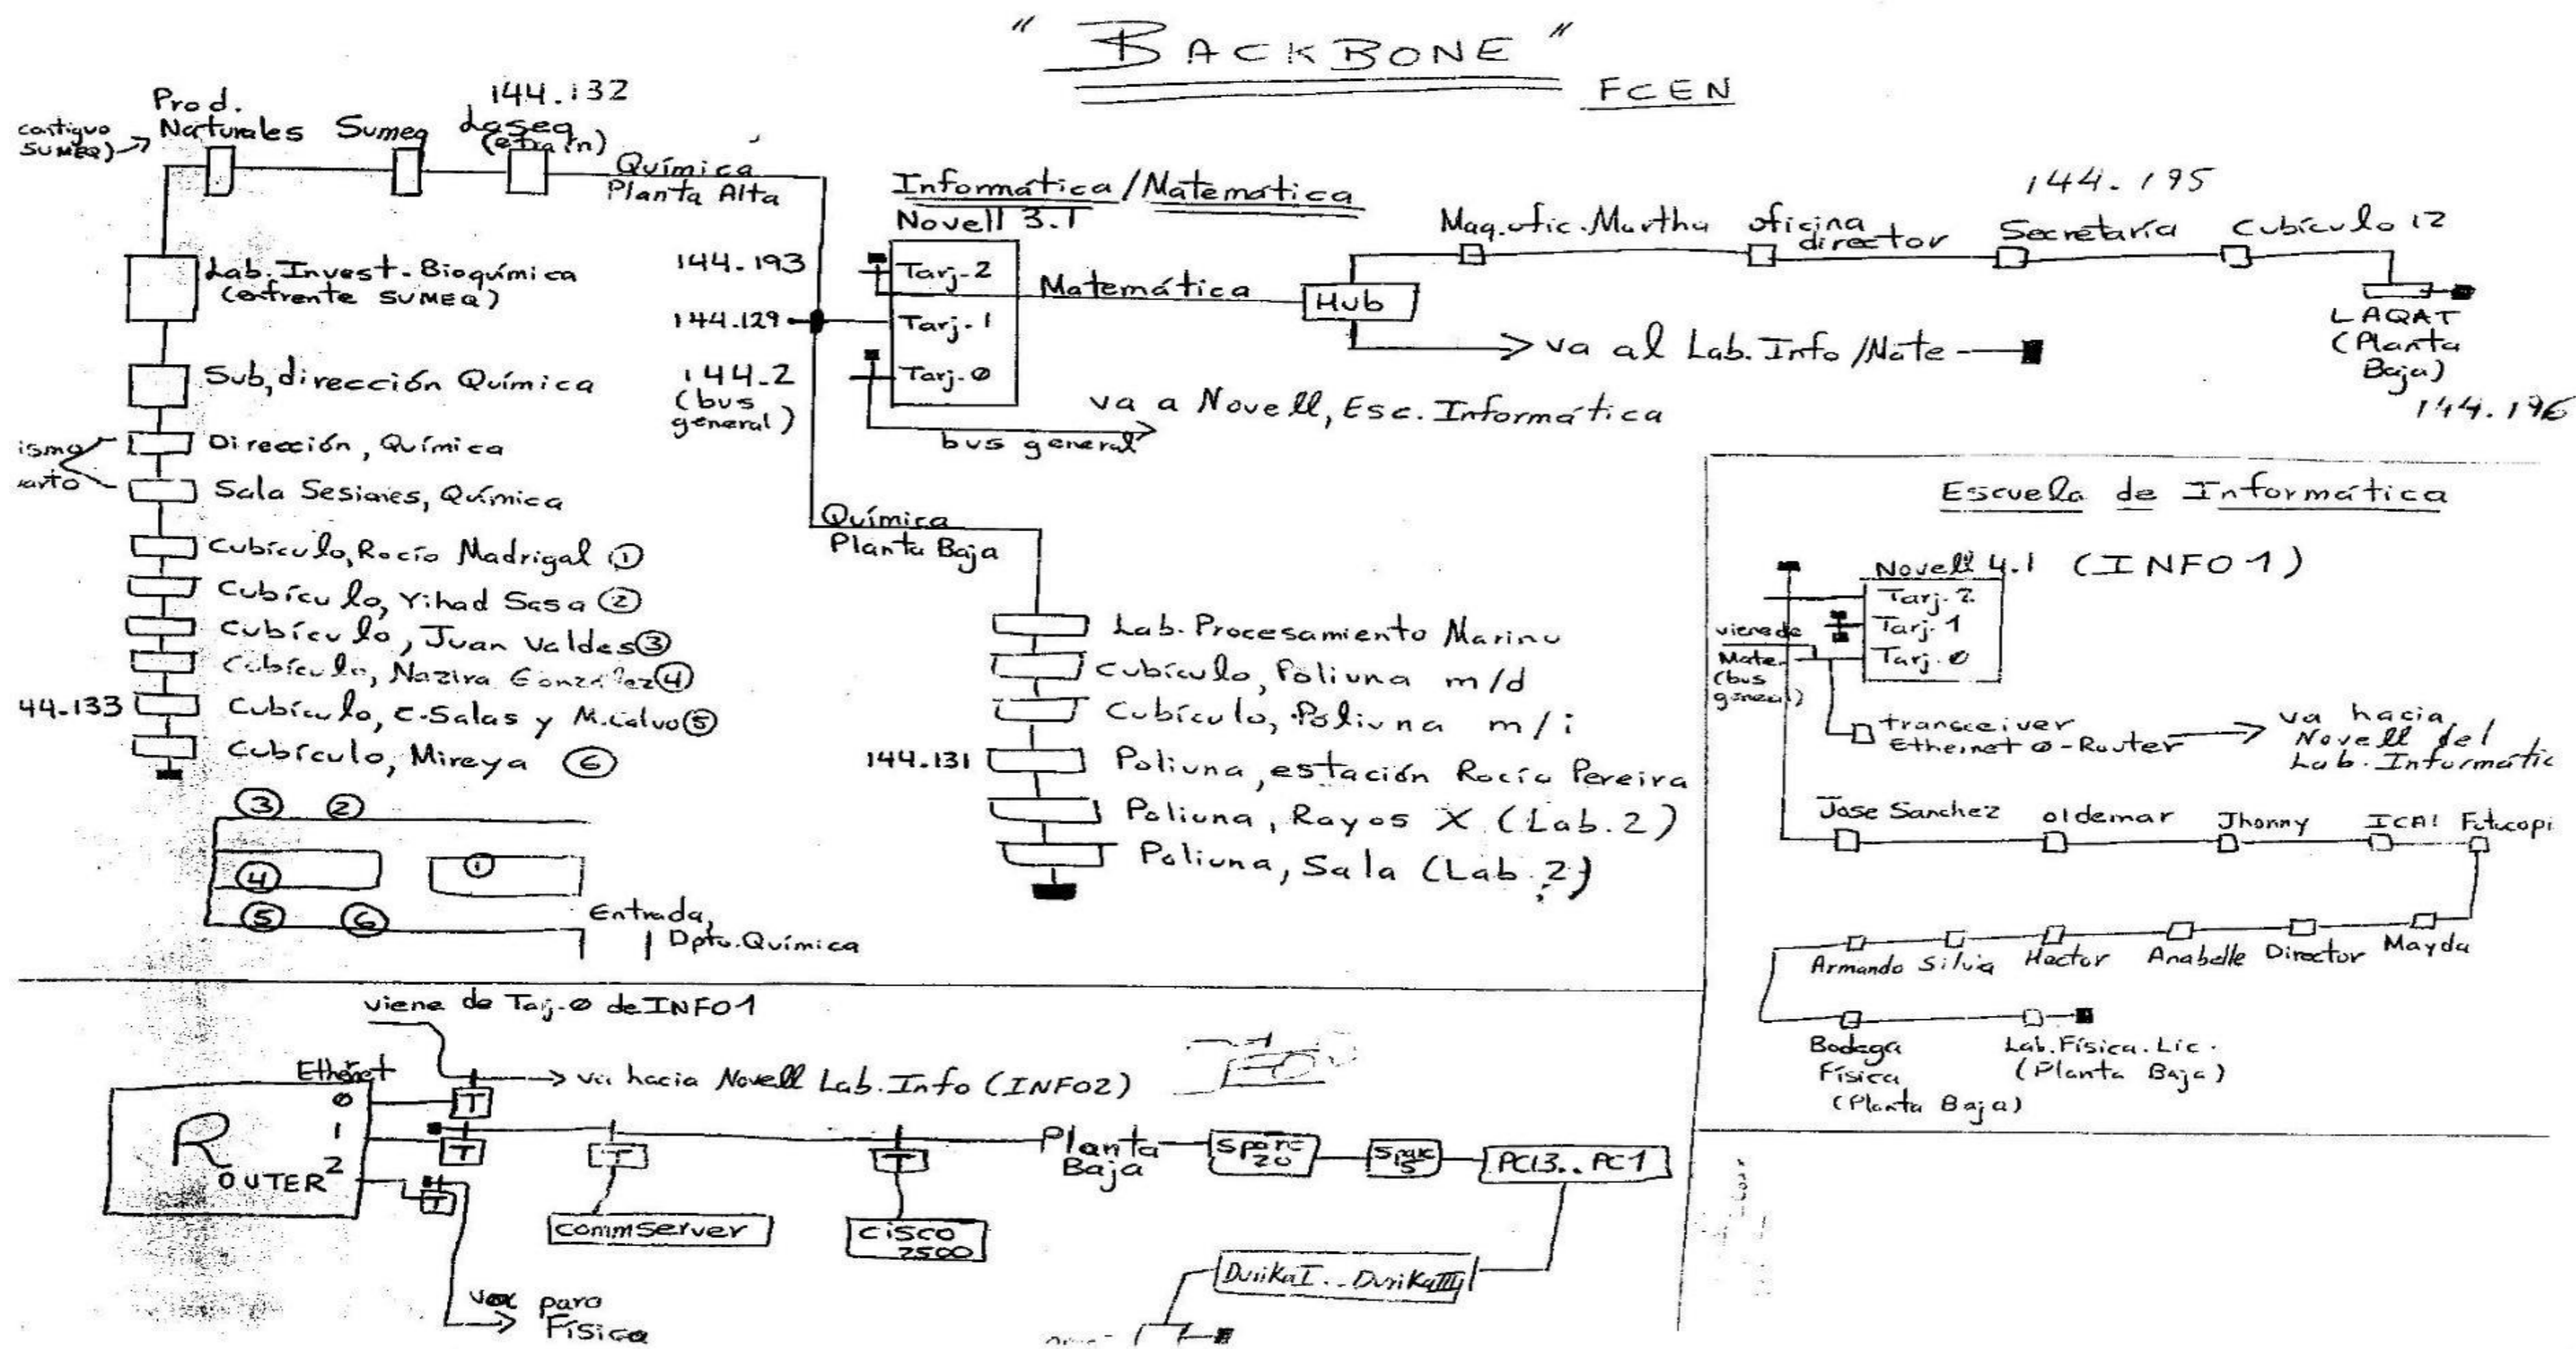 " BACKBONE "
FCEN
contiguo
SUMEQ)
Prod.
Naturales
Sumeq
144.132
Laseq
(efraín)
Química
Planta Alta
Lab. Invest. Bioquímica
(enfrente SUMEQ)
Sub,dirección Química
ismo
Dirección, Química
Sala Sesiones, Química
Cubículo, Rocío Madrigal 1
Cubículo, Yihad Sasa 2
Cubículo, Juan Valdes 3
Cubículo, Nazira González 4
44.133
Cubículo, C.Salas y M.Calvo 5
Cubículo, Mireya 6
3 2
4 1
5 6
Entrada,
Dpto. Química
Informática/Matemática
Novell 3.1
144.193
Tarj-2
144.129
Tarj-1
144.2
(bus
general)
Tarj-0
Matemática
Hub
Maq.ofic.Martha
oficina
director
144.195
Secretaría
Cubículo 12
LAQAT
(Planta
Baja)
144.196
va al Lab. Info/Mate
va a Novell, Esc. Informática
bus general
Química
Planta Baja
Lab. Procesamiento Marino
Cubículo, Poliuna m/d
Cubículo, Poliuna m/i
144.131
Poliuna, estación Rocío Pereira
Poliuna, Rayos X (Lab.2)
Poliuna, Sala (Lab.2)
Escuela de Informática
Novell 4.1 (INFO1)
Tarj-2
Tarj-1
Tarj-0
viene de
Mate.
(bus
general)
transceiver
Ethernet 0-Router
va hacia
Novell del
Lab. Informátic
Jose Sanchez
oldemar
Jhonny
ICAI
Fotocopi
Armando
Silvia
Hector
Anabelle
Director
Mayda
Bodega
Física
(Planta Baja)
Lab. Física. Lic.
(Planta Baja)
viene de Tarj-0 de INFO1
Ethernet
0
1
2
ROUTER
T
T
T
va hacia Novell Lab. Info (INFO2)
T
T
commserver
cisco
2500
va para
Física
Planta
Baja
Sparc
20
Sparc
5
PC13..PC1
DurikaI..DurikaIII